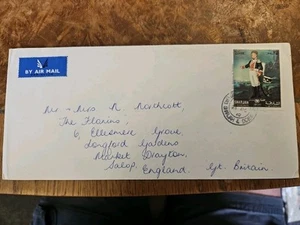 BY AIR MAIL
Mr + Mrs R Northcott,
The Flarins,
6, Ellesmere Grove,
Longford Gardens
Market Drayton,
Salop,
England, Gt. Britain